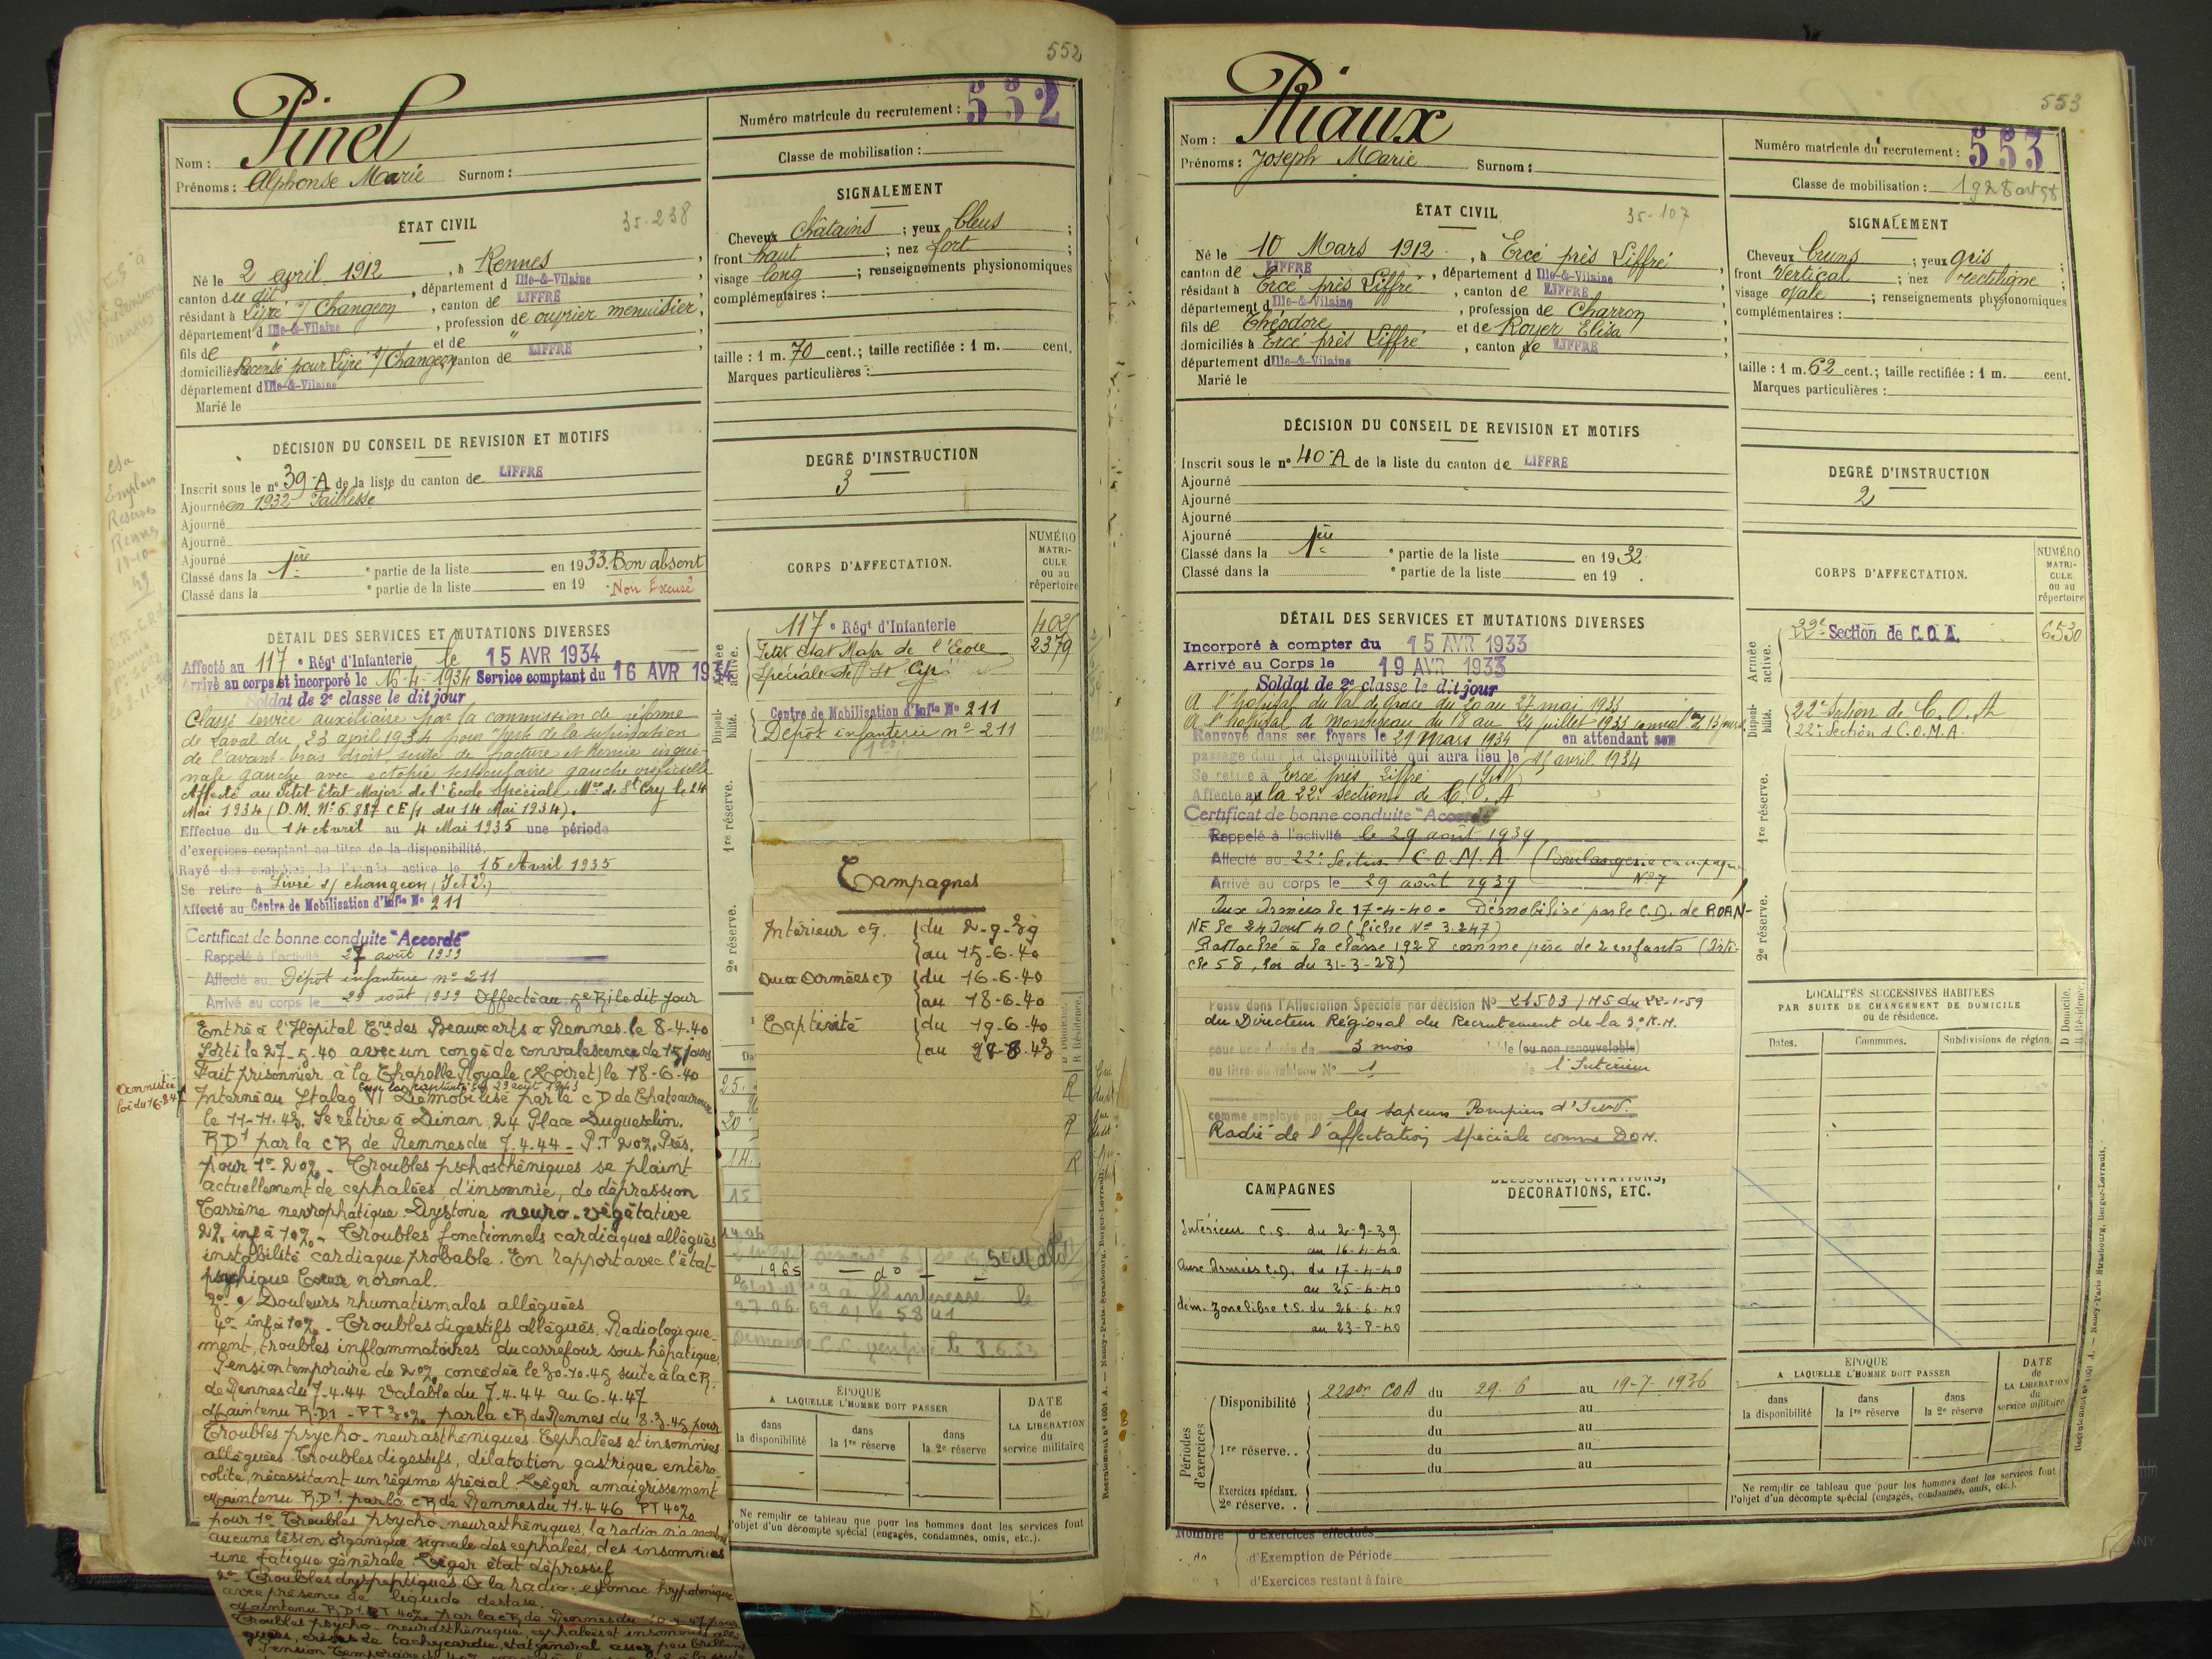 552
Pinel
Nom :
Prénoms : Alphonse Marie Surnom :
Numéro matricule du recrutement : 552
Classe de mobilisation :
ÉTAT CIVIL
35-238
Né le 2 avril 1912, à Rennes,
canton du dit, département d Ille-&-Vilaine
résidant à Livré s/ Changeon, canton de LIFFRÉ
département d Ille-&-Vilaine, profession de ouvrier menuisier,
fils de " et de "
domiciliés Recensé pour Livré s/ Changeon, canton de LIFFRÉ
département d Ille-&-Vilaine
Marié le
SIGNALEMENT
Cheveux Châtains ; yeux bleus ;
front haut ; nez fort ;
visage long ; renseignements physionomiques
complémentaires :
taille : 1 m. 70 cent.; taille rectifiée : 1 m. cent.
Marques particulières :
DÉCISION DU CONSEIL DE REVISION ET MOTIFS
Inscrit sous le n° 39-A de la liste du canton de LIFFRÉ
Ajourné en 1932 Faiblesse
Ajourné
Ajourné
Ajourné
Classé dans la 1ère e partie de la liste en 1933. Bon absent
Classé dans la e partie de la liste en 19 . Non Excusé
DEGRÉ D'INSTRUCTION
3
CORPS D'AFFECTATION.
NUMÉRO
MATRI-
CULE
ou au
répertoire
Armée active.
117e Régt d'Infanterie
Petit état Major de l'École 2379
Spéciale de St Cyr
Disponi-bilité.
Centre de Mobilisation d'Inf.ie N° 211
Dépôt infanterie n° 211
1re réserve.
2e réserve.
DÉTAIL DES SERVICES ET MUTATIONS DIVERSES
Affecté au 117e Régt d'Infanterie le 15 AVR 1934
Arrivé au corps et incorporé le 16-4-1934 Service comptant du 16 AVR 1934
Soldat de 2e classe le dit jour
Classé service auxiliaire par la commission de réforme
de Laval du 23 avril 1934 pour "perte de la supination
de l'avant-bras droit, suite de fracture et hernie ingui-
nale gauche avec ectopie testiculaire gauche orificielle
Affecté au Petit État Major de l'École Spéciale Mre de St Cry le 24
Mai 1934 (D.M. N° 5.887 CE/1 du 14 Mai 1934).
Effectue du 14 Avril au 4 Mai 1935 une période
d'exercices comptant au titre de la disponibilité.
Rayé des contrôles de l'armée active le 15 Avril 1935
Se retire à Livré s/ changeon (I et V.)
Affecté au Centre de Mobilisation d'Inf.ie N° 211
Certificat de bonne conduite "Accordé"
Rappelé à l'activité 27 août 1939
Affecté au Dépôt infanterie n° 211
Arrivé au corps le 29 août 1939 Affecté au 5e RI le dit jour
Entré à l'Hôpital Cre des Beaux arts à Rennes le 8-4-40
Sorti le 27-5-40 avec un congé de convalescence de 15 jours
Fait prisonnier à la Chapelle Royale (Loiret) le 18-6-40
Interné au Stalag VI Démobilisé par le CD de Chateauroux
le 11-11-43. Se retire à Dinan, 24 Place Duguesclin.
RD1 par la CR de Rennes du 7.4.44 - P.T 20% Prés.
pour 1° 20% - Troubles pschosthéniques se plaint
actuellement de cephalées, d'insomnie, de dépression
Terrène nevrophatique. Dystonie neuro-végétative
2° inf à 10% - Troubles fonctionnels cardiaques allégués
instabilité cardiaque probable. En rapport avec l'état
psychique Coeur normal.
3° Douleurs rhumatismales alléguées
4° inf à 10% - Troubles digestifs allégués. Radiologique-
ment, troubles inflammatoires du carrefour sous hépatique
Pension temporaire de 20% concédée le 30-10-45 suite à la CR
de Rennes du 7-4.44 valable du 7.4.44 au 6.4.47
Maintenu R.D1 - PT 30% par la CR de Rennes du 8-3-45 pour
Troubles psycho-neurasthéniques. Cephalées et insomnies
alléguées. Troubles digestifs, dilatation gastrique entéro-
colite, nécessitant un régime spécial. Léger amaigrissement
Maintenu R.D1 par la CR de Rennes du 11.4.46 PT 40%
pour 1° Troubles psycho-neurasthéniques, la radio n'a montré
aucune lésion organique signale des cephalées, des insomnies
une fatigue générale. Léger état dépressif
2° Troubles dyspeptiques. A la radio : estomac hypotonique
avec présence de liquide de stase.
Troubles psycho-neurasthénique, cephalées et insomnies allé-
guées, crises de tachycardie, état général assez peu brillant
Amnistié
loi du 16-8-47
Campagnes
Intérieur CS. du 2-9-39
au 15-6-40
Aux Armées CD du 16-6-40
au 18-6-40
Captivité du 19-6-40
au 28-8-43
ÉPOQUE
A LAQUELLE L'HOMME DOIT PASSER
dans la disponibilité
dans la 1re réserve
dans la 2e réserve
DATE
de
LA LIBÉRATION
du
service militaire
Ne remplir ce tableau que pour les hommes dont les services font
l'objet d'un décompte spécial (engagés, condamnés, omis, etc.).
553
Riaux
Nom :
Prénoms : Joseph Marie Surnom :
Numéro matricule du recrutement : 553
Classe de mobilisation : 1928 art 58
ÉTAT CIVIL
35-107
Né le 10 Mars 1912, à Ercé près Liffré,
canton de LIFFRÉ, département d Ille-&-Vilaine
résidant à Ercé près Liffré, canton de LIFFRÉ
département d Ille-&-Vilaine, profession de Charron
fils de Théodore et de Royer Elisa
domiciliés à Ercé près Liffré, canton de LIFFRÉ
département d Ille-&-Vilaine
Marié le
SIGNALEMENT
Cheveux bruns ; yeux gris ;
front Vertical ; nez rectiligne ;
visage ovale ; renseignements physionomiques
complémentaires :
taille : 1 m. 62 cent.; taille rectifiée : 1 m. cent.
Marques particulières :
DÉCISION DU CONSEIL DE REVISION ET MOTIFS
Inscrit sous le n° 40-A de la liste du canton de LIFFRÉ
Ajourné
Ajourné
Ajourné
Ajourné
Classé dans la 1ère e partie de la liste en 1932.
Classé dans la e partie de la liste en 19 .
DEGRÉ D'INSTRUCTION
2
CORPS D'AFFECTATION.
NUMÉRO
MATRI-
CULE
ou au
répertoire
Armée active.
22e Section de C.O.A. 6530
Disponi-bilité.
22e Section de C.O.A
22e Section d C.O.M.A.
1re réserve.
2e réserve.
DÉTAIL DES SERVICES ET MUTATIONS DIVERSES
Incorporé à compter du 15 AVR 1933
Arrivé au Corps le 19 AVR 1933
Soldat de 2e classe le dit jour
A l'hôpital du Val de Grâce du 20 au 27 mai 1933
A l'hôpital de Montereau du 18 au 24 juillet 1933
Renvoyé dans ses foyers le 29 Mars 1934 en attendant son
passage dans la disponibilité qui aura lieu le 15 avril 1934
Se retire à Ercé près Liffré (I & V)
Affecté à la 22e Section de C.O.A
Certificat de bonne conduite "Accordé"
Rappelé à l'activité le 29 août 1939
Affecté au 22e Section C.O.M.A (Boulangerie campagne
Arrivé au corps le 29 août 1939 N° 7
Aux Armées le 17-4-40. Démobilisé par le C.D. de ROAN-
NE le 24 Aout 40 (fiche N° 3.247)
Rattaché à la classe 1928 comme père de 2 enfants (Arti-
cle 58, loi du 31-3-28)
Passé dans l'Affectation Spéciale par décision N° 21503 / MS du 22-1-59
du Directeur Régional du Recrutement de la 3e R.M.
pour une durée de 3 mois (ou non renouvelable)
au titre du tableau N° 1 de l'Intérieur
comme employé par les Sapeurs Pompiers d'I et V.
Radié de l'affectation spéciale comme DOM.
LOCALITÉS SUCCESSIVES HABITÉES
PAR SUITE DE CHANGEMENT DE DOMICILE
ou de résidence.
Dates. Communes. Subdivisions de région.
D Domicile.
R Résidence.
CAMPAGNES
BLESSURES, CITATIONS,
DÉCORATIONS, ETC.
Intérieur C.S. du 2-9-39
au 16-4-40
Aux Armées C.D. du 17-4-40
au 25-6-40
dém. Zone libre C.S. du 26-6-40
au 23-8-40
Périodes d'exercices
Disponibilité 22 son COA du 29.6 au 19-7-1936
du au
du au
1re réserve.. du au
du au
Exercices spéciaux.
2e réserve. .
ÉPOQUE
A LAQUELLE L'HOMME DOIT PASSER
dans la disponibilité
dans la 1re réserve
dans la 2e réserve
DATE
de
LA LIBÉRATION
du
service militaire
Ne remplir ce tableau que pour les hommes dont les services font
l'objet d'un décompte spécial (engagés, condamnés, omis, etc.).
Nombre d'Exercices effectués
de d'Exemption de Période
d'Exercices restant à faire